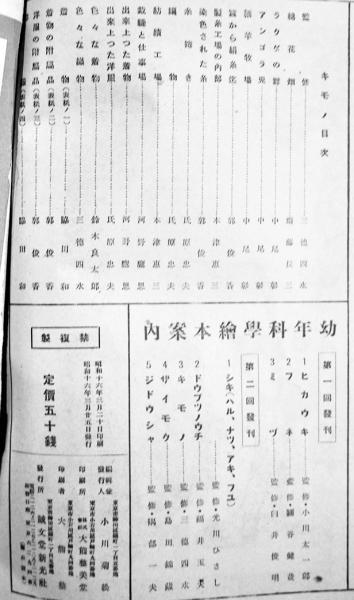 キモノ目次
監修 三徳四水
棉花畑 齋藤長三
ラクダの群 中尾彰
アンゴラ兎 中尾彰
緬羊牧場 中尾彰
繭から絹糸迄 郭俊香
製糸工場の内部 本津恵三
染色された糸 郭俊香
糸捲き 氏原忠夫
織物 氏原忠夫
紡績工場 本津恵三
裁縫と仕事場 河野鷹思
出来上つた着物 河野鷹思
出来上つた洋服 氏原忠夫
色々な着物 鈴木良太郎
色々な織物 三徳四水
着物(表紙ノ一) 脇田和
着物の附属品(表紙ノ二) 郭俊香
洋服の附属品(表紙ノ三) 郭俊香
(表紙ノ四) 脇田和
幼年科學繪本案内
第一回發刊
1 ヒカウキ 監修・小川太一郎
2 フネ 監修・
3 ミヅ 監修・白井俊明
第二回發刊
1 シキ(ハル、ナツ、アキ、フユ) 監修・光川ひさし
2 ドウブツノウチ 監修・福井玉夫
3 キモノ 監修・三徳四水
4 ザイモク 監修・島田錦藏
5 ジドウシャ 監修・隈部一夫
禁複製
定價五十錢
昭和十六年三月二十日印刷
昭和十六年三月廿五日發行
編輯兼發行人 小川菊松
印刷所 大熊整美堂
印刷者 大熊整
發行所 誠文堂新光社